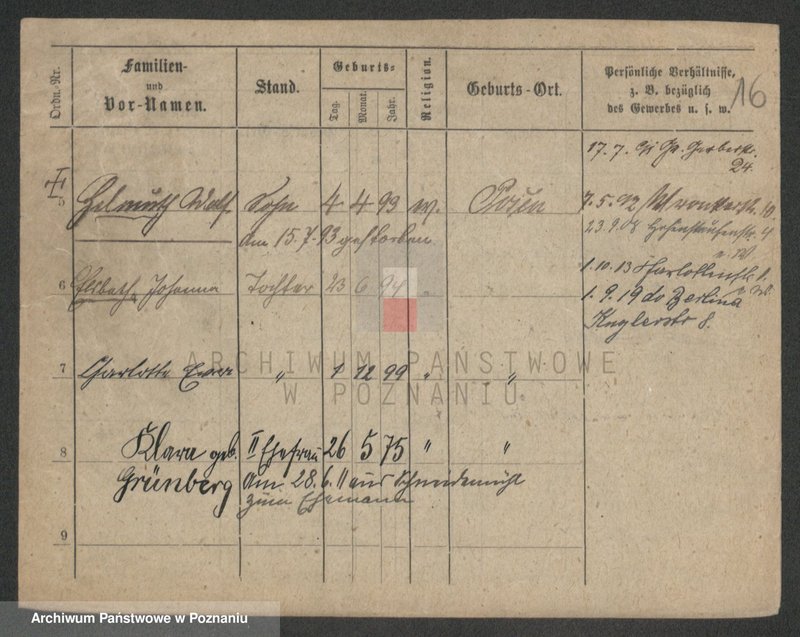 Ordn. Nr.
Familien- und Vor-Namen.
Stand.
Geburts-
Tag.
Monat.
Jahr.
Religion.
Geburts-Ort.
Persönliche Verhältnisse, z. B. bezüglich des Gewerbes u. s. w.
16
17. 7. Gr. Gerberstr. 24.
5 Helmuth Sohn 4 4 93 Posen
7.5.02 10
am 15.7.93 gestorben
23.9.08 Hohenstaufenstr. 4
6 Elsbeth Johanna Tochter 23 6 94
1.10.13
1.9.19 do Berlin
Kuglerstr 8.
7 Charlotte " 1 12 99 " "
ARCHIWUM PAŃSTWOWE
W POZNANIU
8 Klara geb. II Ehefrau 26 5 75 " "
Grünberg am 28.6.11 aus Schneidemühl
zum Ehemann
9
Archiwum Państwowe w Poznaniu